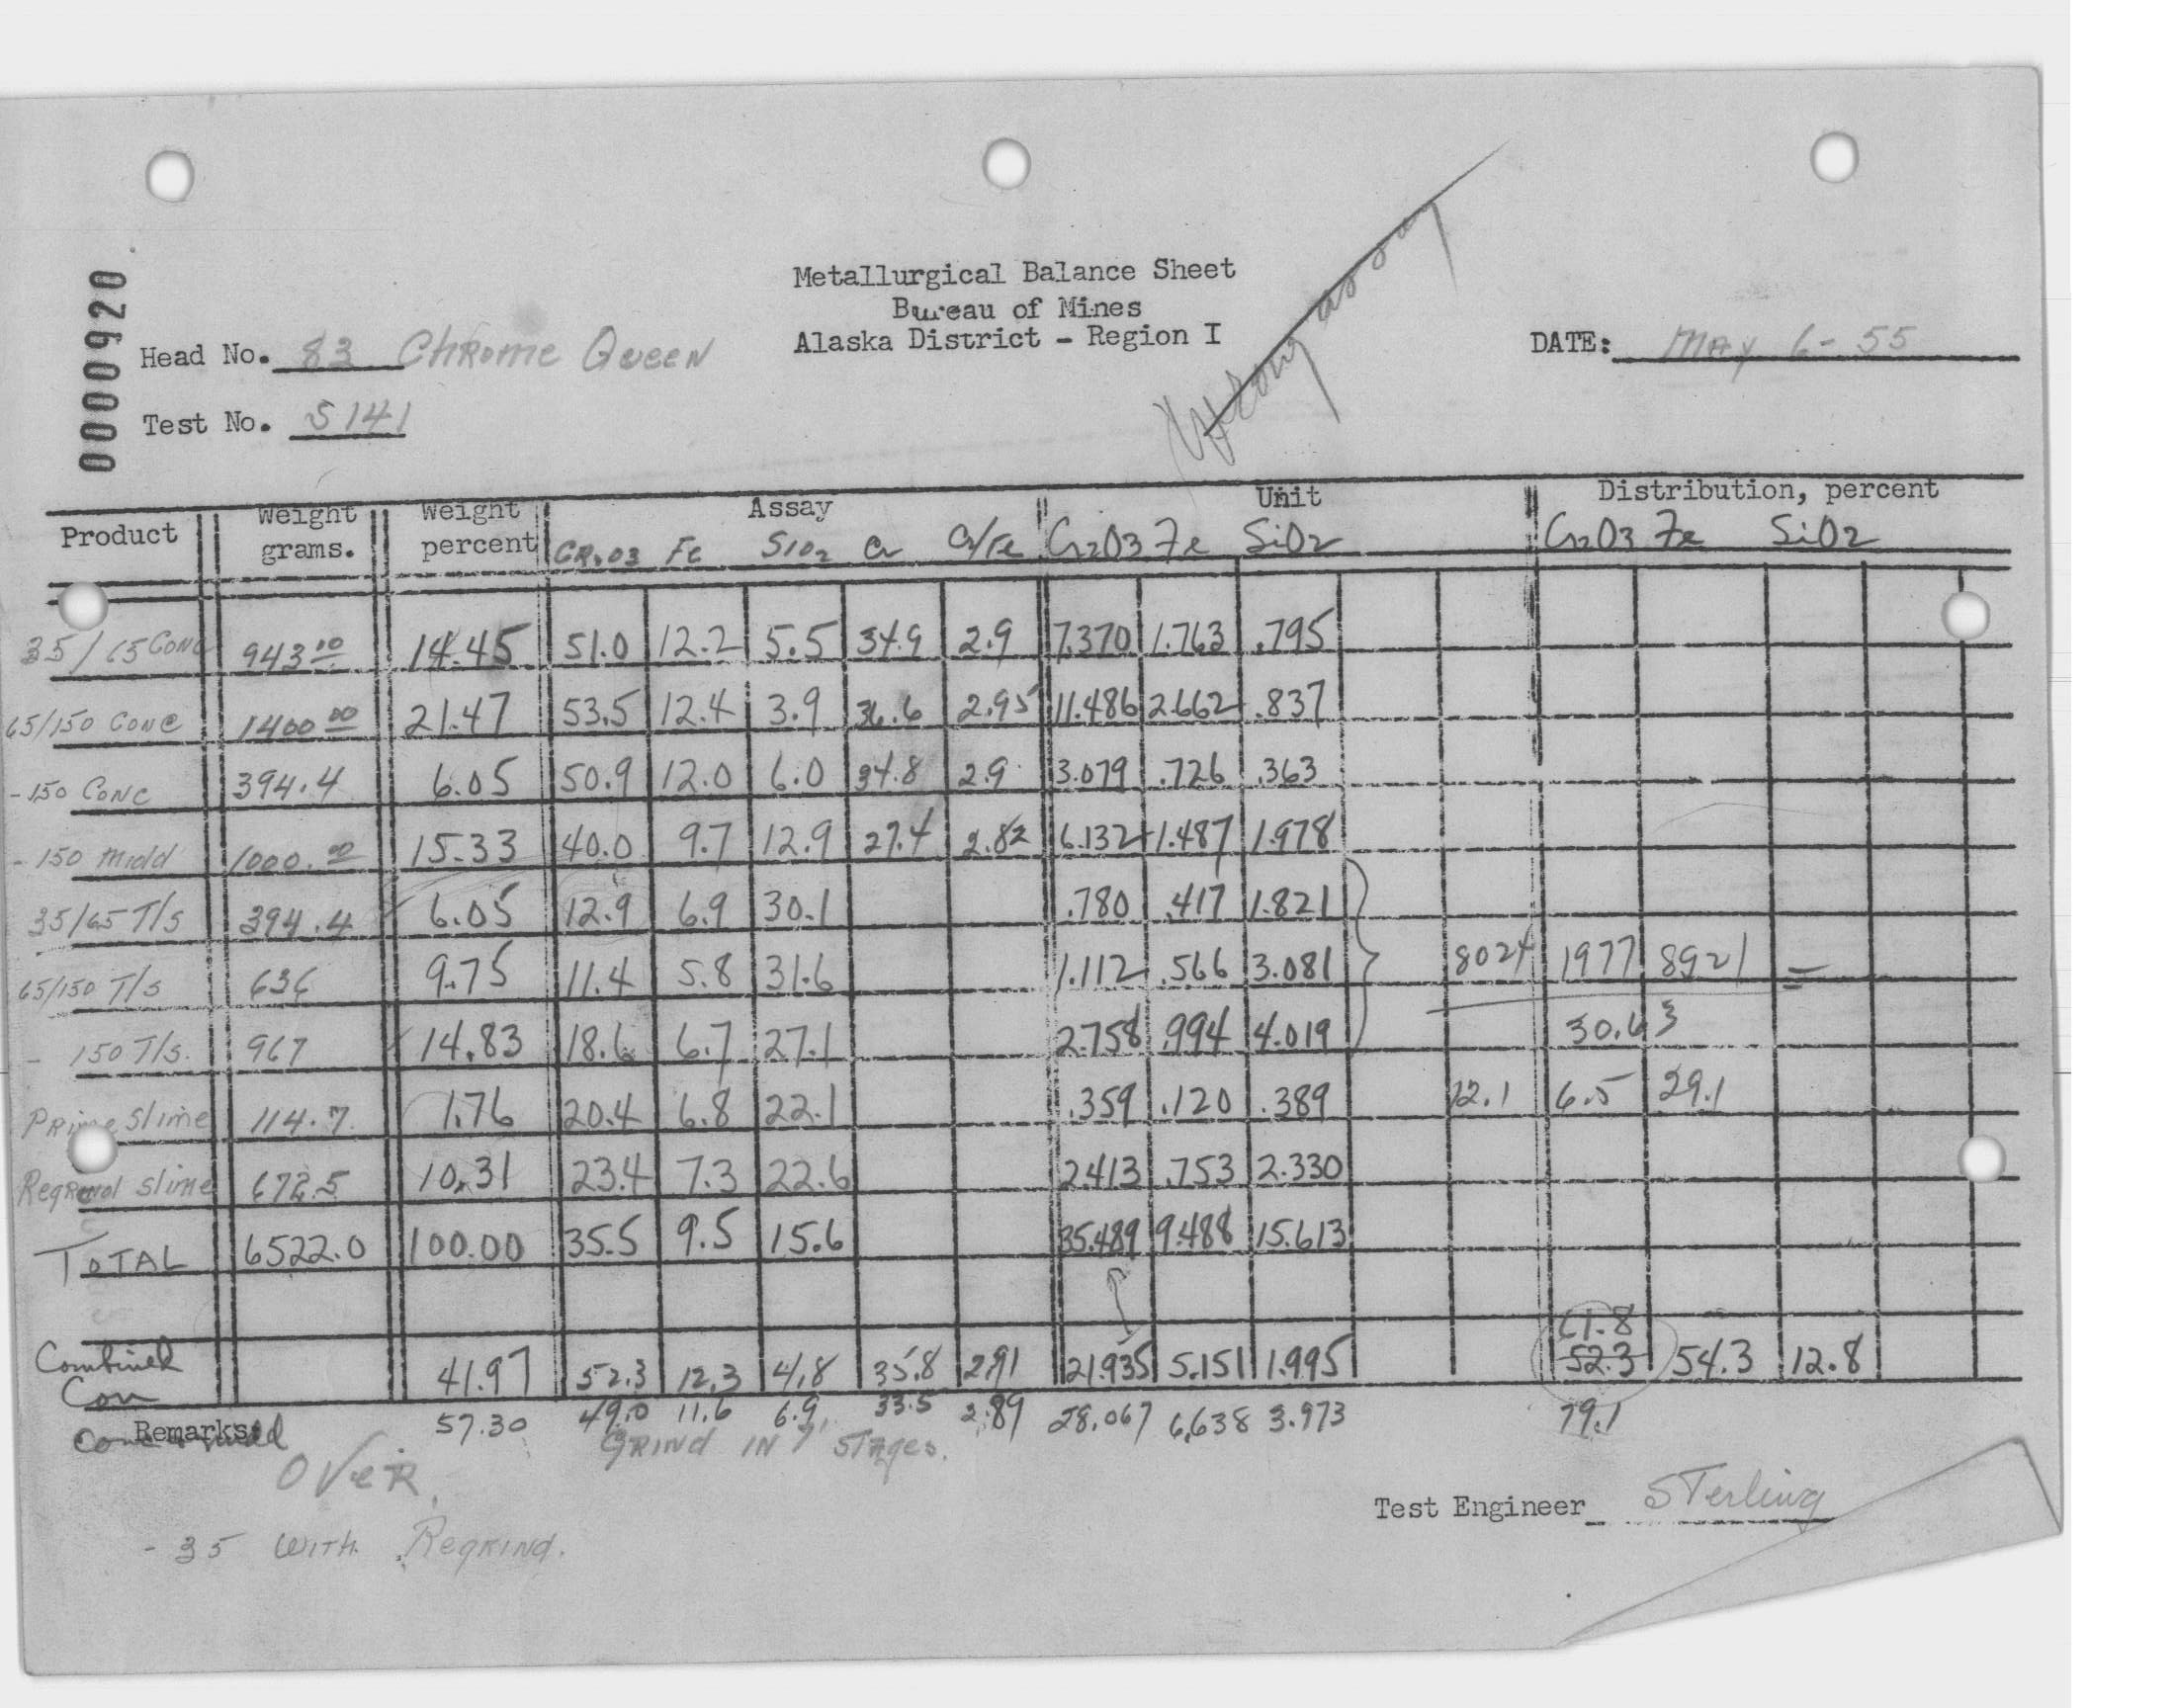 0000920
Metallurgical Balance Sheet
Bureau of Mines
Alaska District - Region I
Wrong assay
Head No. 83 Chrome Queen
DATE: May 6-55
Test No. 5141
Product Weight grams. Weight percent Assay Unit Distribution, percent
CR2O3 Fe SiO2 Cr Cr/Fe Cr2O3 Fe SiO2 Cr2O3 Fe SiO2
35/65 Conc 943.00 14.45 51.0 12.2 5.5 34.9 2.9 7.370 1.763 .795
65/150 Conc 1400.00 21.47 53.5 12.4 3.9 36.6 2.95 11.486 2.662 .837
-150 Conc 394.4 6.05 50.9 12.0 6.0 34.8 2.9 3.079 .726 .363
-150 Midd 1000.00 15.33 40.0 9.7 12.9 27.4 2.82 6.132 1.487 1.978
35/65 T/s 394.4 6.05 12.9 6.9 30.1 .780 .417 1.821
65/150 T/s 636 9.75 11.4 5.8 31.6 1.112 .566 3.081 8024 1977 8921 =
- 150 T/s. 967 14.83 18.6 6.7 27.1 2.758 .994 4.019 30.63
Prime Slime 114.7 1.76 20.4 6.8 22.1 .359 .120 .389 12.1 6.5 29.1
Regrind slime 672.5 10.31 23.4 7.3 22.6 2.413 .753 2.330
TOTAL 6522.0 100.00 35.5 9.5 15.6 35.489 9.488 15.613
61.8
Combined Con 41.97 52.3 12.3 4.8 35.8 2.91 21.935 5.151 1.995 52.3 54.3 12.8
Conc + midd 57.30 49.0 11.6 6.9 33.5 2.89 28.067 6.638 3.973 79.1
Remarks: Grind in 7 stages.
Over
Test Engineer Sterling
- 35 with Regrind.